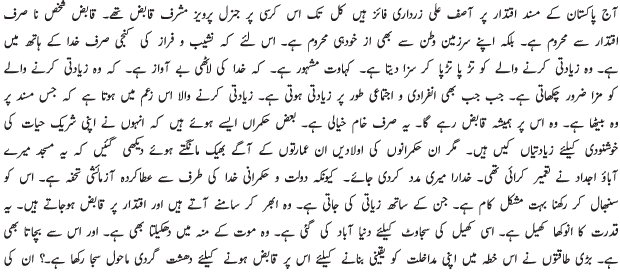 آج پاکستان کے مسند اقتدار پر آصف علی زرداری فائز ہیں کل تک اس کرسی پر جنرل پرویز مشرف قابض تھے۔ قابض شخص نا صرف
اقتدار سے محروم ہے۔ بلکہ اپنے سرزمین وطن سے بھی از خودہی محروم ہے۔ اس لئے کہ نشیب و فراز کی کنجی صرف خدا کے ہاتھ میں
ہے۔ وہ زیادتی کرنے والے کو تڑ پا تڑپا کر سزا دیتا ہے۔ کہاوت مشہور ہے۔ کہ خدا کی لاٹھی بے آواز ہے۔ کہ وہ زیادتی کرنے والے
کو مزا ضرور چکھاتی ہے۔ جب جب بھی انفرادی و اجتماعی طور پر زیادتی ہوتی ہے۔ زیادتی کرنے والا اس زعم میں ہوتا ہے کہ جس مسند پر
وہ بیٹھا ہے۔ وہ اس پر ہمیشہ قابض رہے گا۔ یہ صرف خام خیالی ہے۔ بعض حکمراں ایسے ہوئے ہیں کہ انہوں نے اپنی شریک حیات کی
خوشنودی کیلئے زیادتیاں کیں ہیں۔ مگر ان حکمرانوں کی اولادیں ان عمارتوں کے آگے بھیک مانگتے ہوئے دیکھی گئیں کہ یہ مسجد میرے
آباؤ اجداد نے تعمیر کرائی تھی۔ خدارا میری مدد کردی جائے۔ کیونکہ دولت و حکمرانی خدا کی طرف سے عطاکردہ آزمائشی تحفہ ہے۔ اس کو
سنبھال کر رکھنا بہت مشکل کام ہے۔ جن کے ساتھ زیاتی کی جاتی ہے۔ وہ ابھر کر سامنے آتے ہیں اور اقتدار پر قابض ہوجاتے ہیں۔ یہ
قدرت کا انوکھا کھیل ہے۔ اسی کھیل کی سجاوٹ کیلئے دنیا آباد کی گئی ہے۔ وہ موت کے منہ میں دھکیلتا بھی ہے۔ اور اس سے بچاتا بھی
ہے۔ بڑی طاقتوں نے اس خطہ میں اپنی مداخلت کو یقینی بنانے کیلئے اس پر قابض ہونے کیلئے دھشت گردی ماحول سجا رکھا ہے۔؟ ان کی